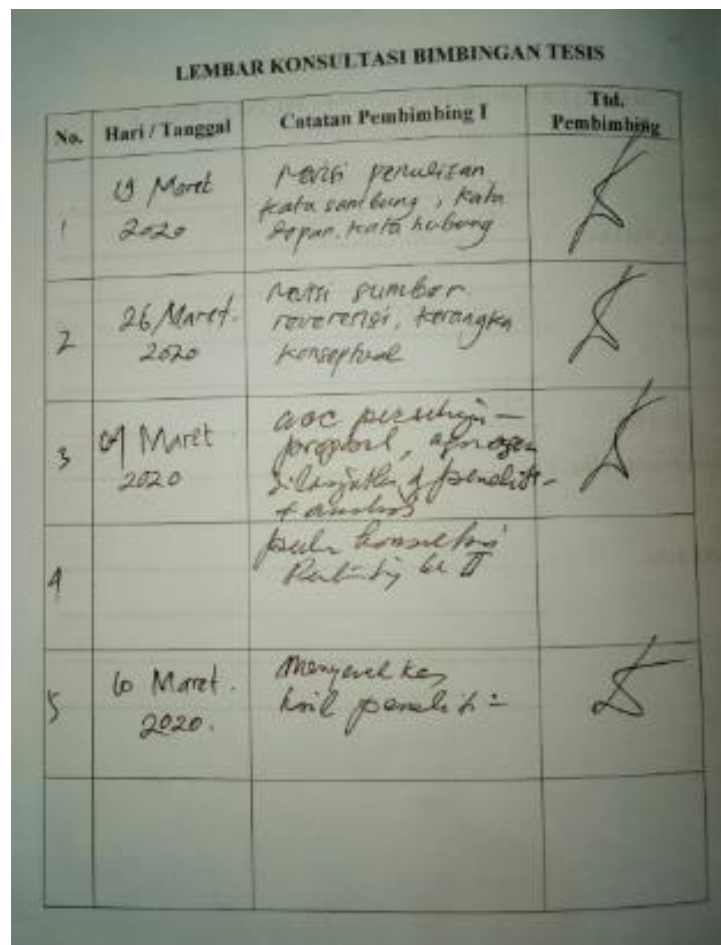 LEMBAR KONSULTASI BIMBINGAN TESIS
No. Hari / Tanggal Catatan Pembimbing I Ttd. Pembimbing
1 19 Maret 2020
Revisi penulisan
kata sambung, kata
depan, kata hubung
2 26 Maret. 2020
Revisi sumber
reverensi, kerangka
konseptual
3 Maret 2020
acc
proposal, agar
dilanjutkan
4
perlu konsultasi
II
5 Maret. 2020.
Menyerahkan
hasil